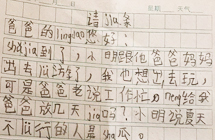 请jia条
爸爸的lingdao您好:
shujia到了,小明跟他爸爸妈妈
出去旅游了,我也想出去玩,
可是爸爸老说工作忙,neng给我
爸爸放几天jia吗?小明说夏天
不旅行的人是sha瓜。